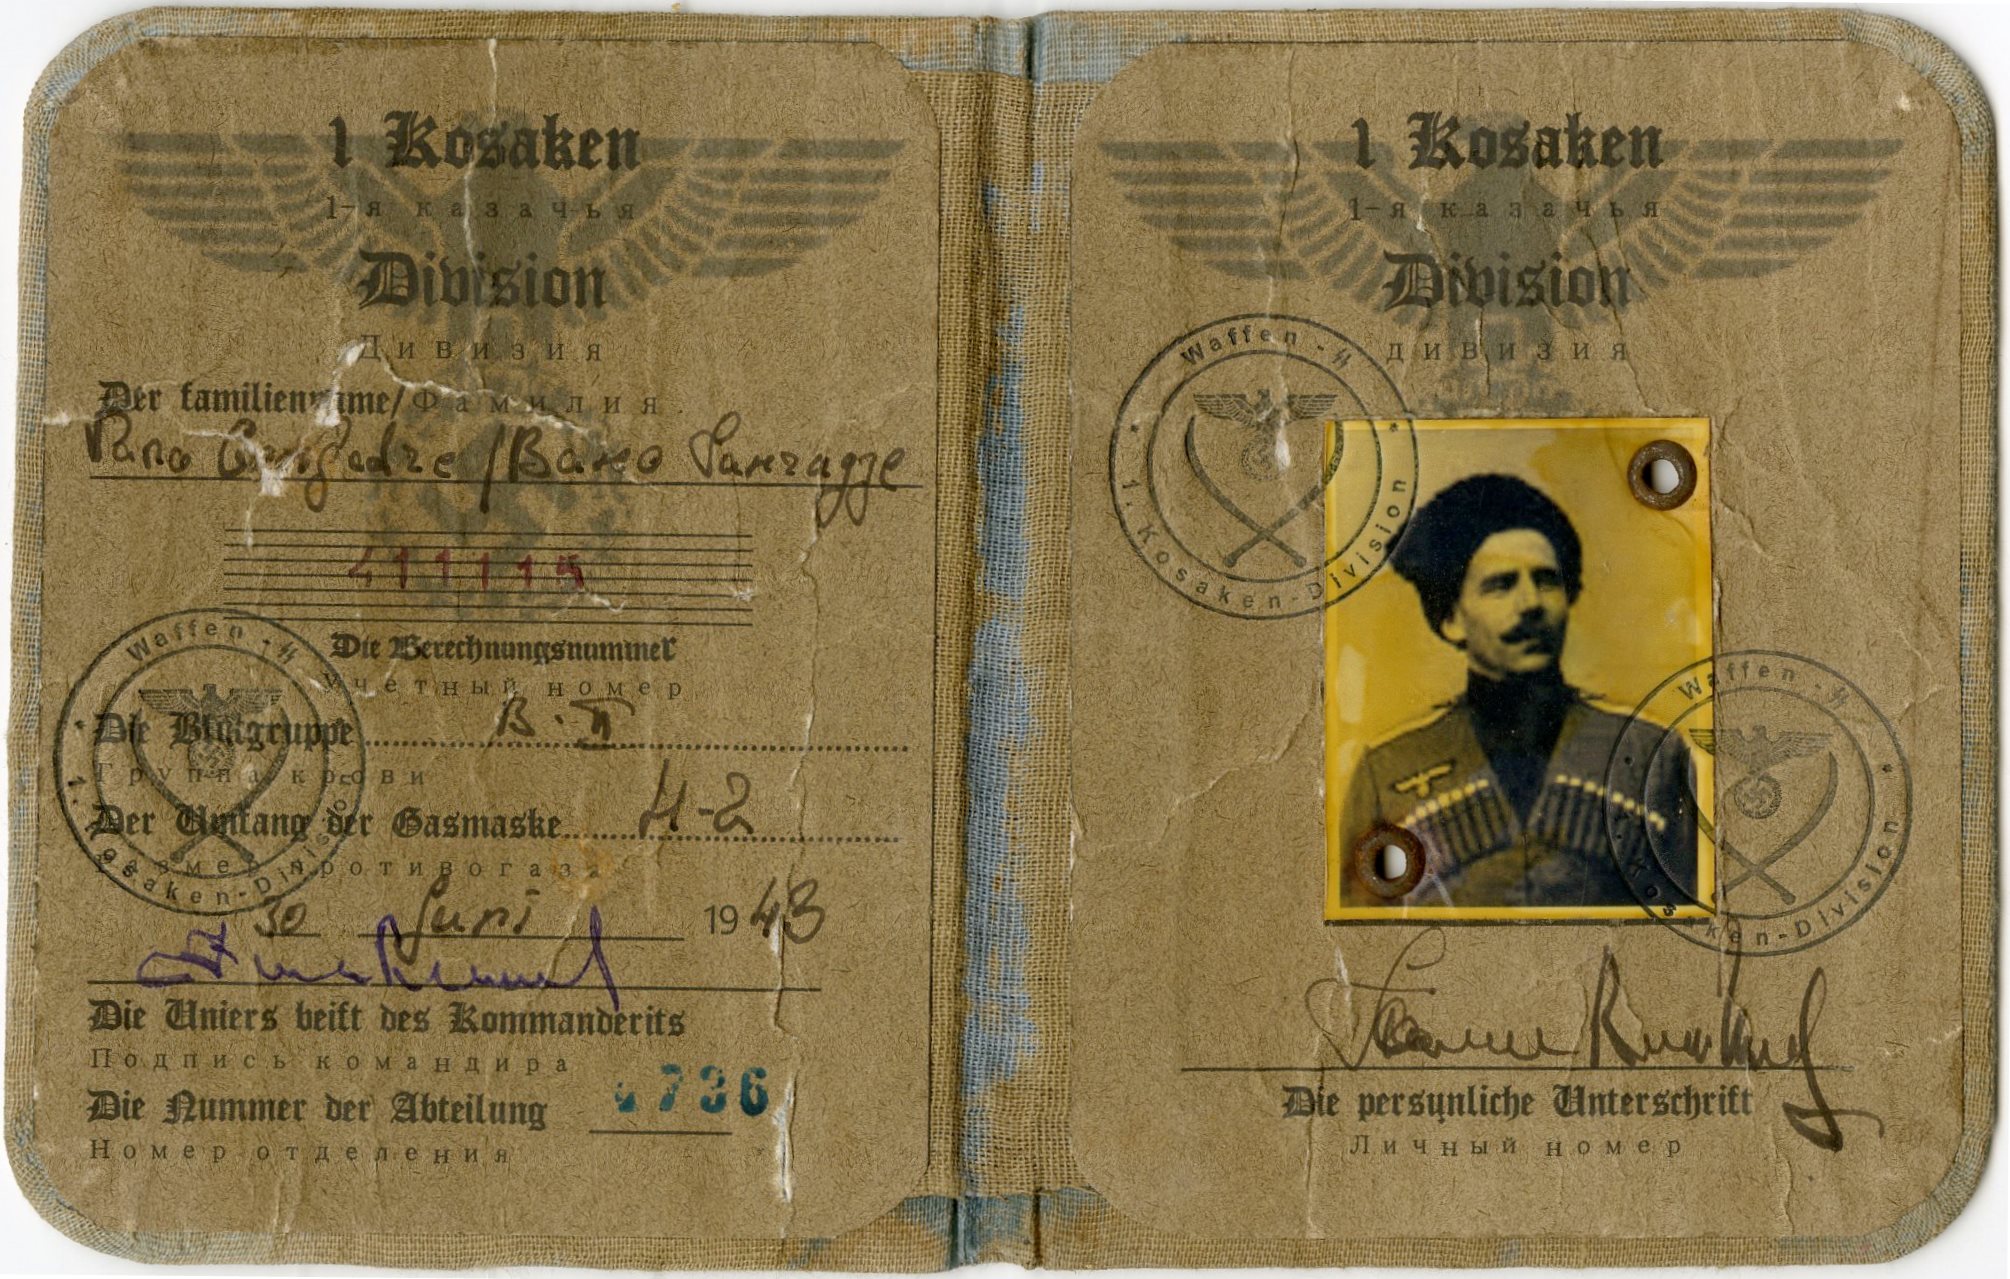 1 Kosaken
1-я казачья
Division
Дивизия
Der familienname/Фамилия.
/Вано
411115
Die Berechnungsnummer
Учетный номер
Die Blutgruppe B. II
Группа крови
Der Umfang der Gasmaske 4-2
Размер противогаза
30 Juni 1943
Die Uniers beift des Kommanderits
Подпись командира
Die Nummer der Abteilung 736
Номер отделения
Waffen-SS
1. Kosaken-Division
1 Kosaken
1-я казачья
Division
дивизия
Waffen-SS
1. Kosaken-Division
Waffen-SS
1. Kosaken-Division
Die persunliche Unterschrift
Личный номер